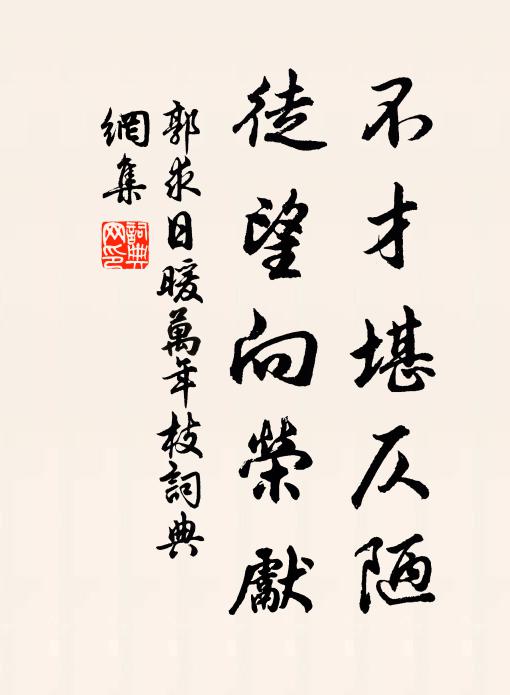 不才堪仄陋
徒望向榮獻
郭求日暖萬年枝詞典
網集
詞典
网印